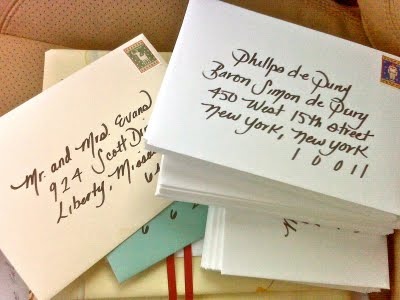 Mr. and Mrs. Evans
924 Scott
Liberty,
6
6 6
Phillps de Pury
Baron Simon de Pury
450 West 15th Street
New York, New York
10011